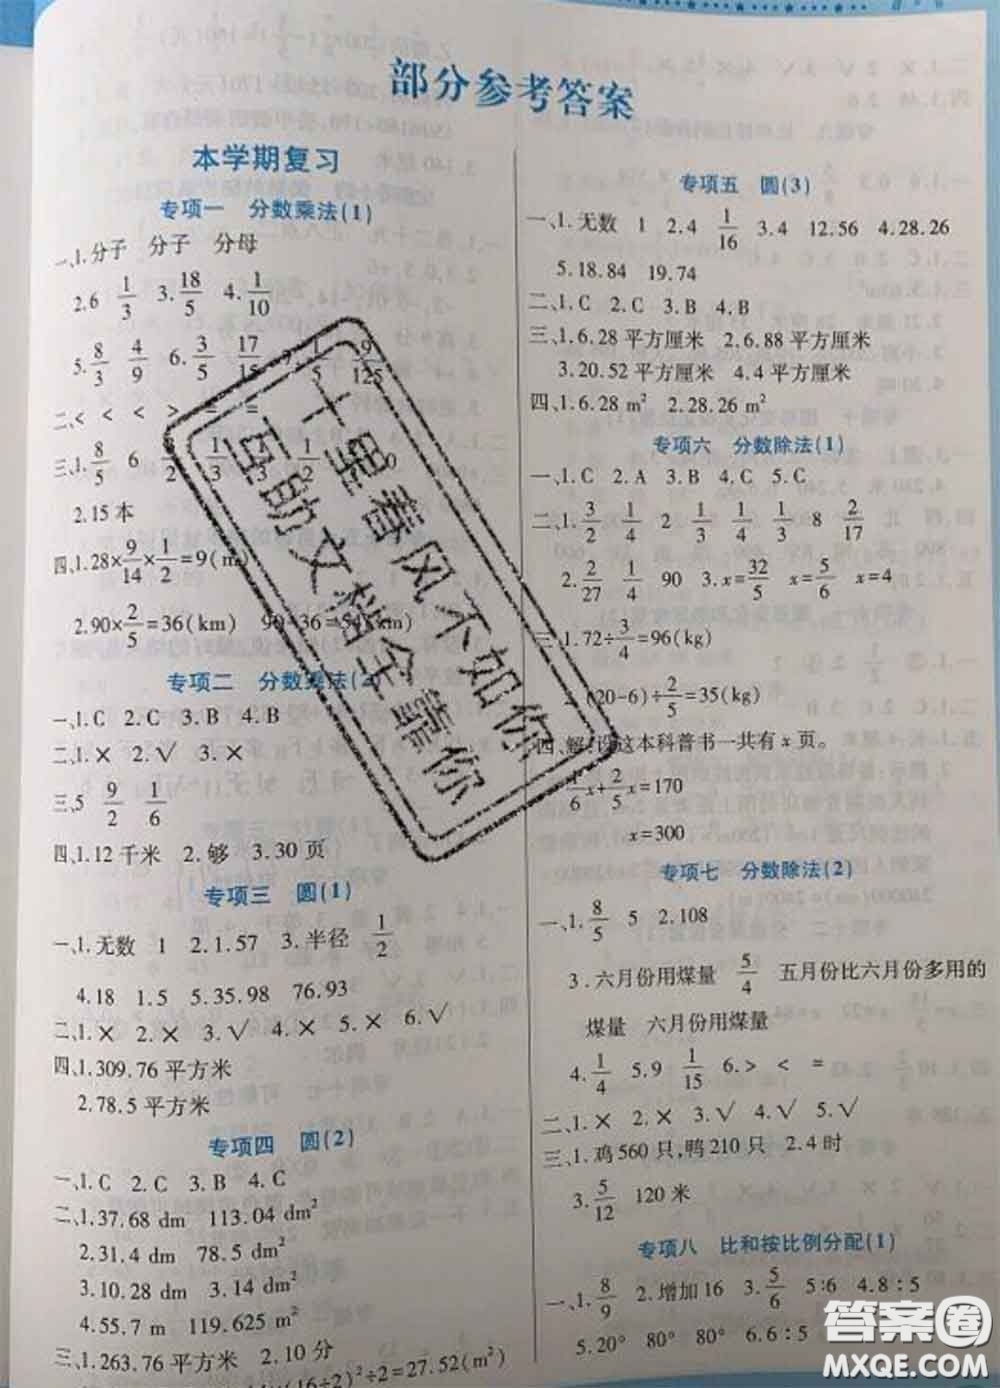 部分参考答案
本学期复习
专项一 分数乘法(1)
一、1.分子 分子 分母
2.6 1/3 3.18/5 4.1/10
5.8/3 4/9 6.3/5 17/15 7.1/5 9/125
二、< < < > = =
三、1.8/5 6 1/2 1/3 1/3 1/2 0
2.15本
四、1.28×9/14×1/2=9(m)
2.90×2/5=36(km) 90-36=54(km)
专项二 分数乘法(2)
一、1.C 2.C 3.B 4.B
二、1.× 2.√ 3.×
三、5 9/2 1/6
四、1.12千米 2.够 3.30页
专项三 圆(1)
一、1.无数 1 2.1.57 3.半径 1/2
4.18 1.5 5.35.98 76.93
二、1.× 2.× 3.√ 4.× 5.× 6.√
四、1.309.76平方米
2.78.5平方米
专项四 圆(2)
一、1.C 2.C 3.B 4.C
二、1.37.68 dm 113.04 dm²
2.31.4 dm 78.5 dm²
3.10.28 dm 3.14 dm²
4.55.7 m 119.625 m²
三、1.263.76平方米 2.10分
(16÷2)²÷2=27.52(m²)
专项五 圆(3)
一、1.无数 1 2.4 1/16 3.4 12.56 4.28.26
5.18.84 19.74
二、1.C 2.C 3.B 4.B
三、1.6.28平方厘米 2.6.88平方厘米
3.20.52平方厘米 4.4平方厘米
四、1.6.28 m² 2.28.26 m²
专项六 分数除法(1)
一、1.C 2.A 3.B 4.C 5.C
二、1.3/2 1/4 2 1/3 1/4 1/3 8 2/17
2.2/27 1/4 90 3.x=32/5 x=5/6 x=4
三、1.72÷3/4=96(kg)
2.(20-6)÷2/5=35(kg)
四、解:设这本科普书一共有x页。
1/6x+2/5x=170
x=300
专项七 分数除法(2)
一、1.8/5 5 2.108
3.六月份用煤量 5/4 五月份比六月份多用的
煤量 六月份用煤量
4.1/4 5.9 1/15 6.> < =
二、1.× 2.× 3.√ 4.√ 5.√
三、1.鸡560只,鸭210只 2.4时
3.5/12 120米
专项八 比和按比例分配(1)
一、1.8/9 2.增加16 3.5/6 5:6 4.8:5
5.20° 80° 80° 6.6:5
十里春风不如你
互助文档全靠你
答案圈
MXQE.COM